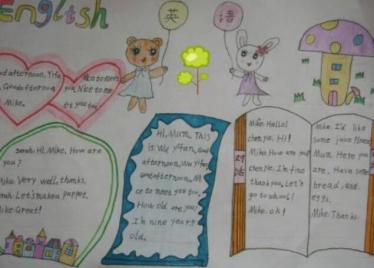 English
英 语
afternoon, Yifan
Good afternoon
Mike.
Nice to
Sarah: Hi, Mike. How are
you?
Mike: Very well, thanks.
Let's make a puppet.
Mike: Great!
Hi, Mum. This
is Wu Yifan. Good
afternoon, Wu Yifan
Good afternoon. Ni
ce to meet you too.
How old are you?
I'm nine years
old.
对话
Hello!
Hi!
Mike: How are you?
I'm fine
thank you. Let's
go to school!
Mike: ok!
Mike: I'd like
some juice Please.
Mum: Here you
are. Have some
bread, and
eggs.
Mike: Thanks.